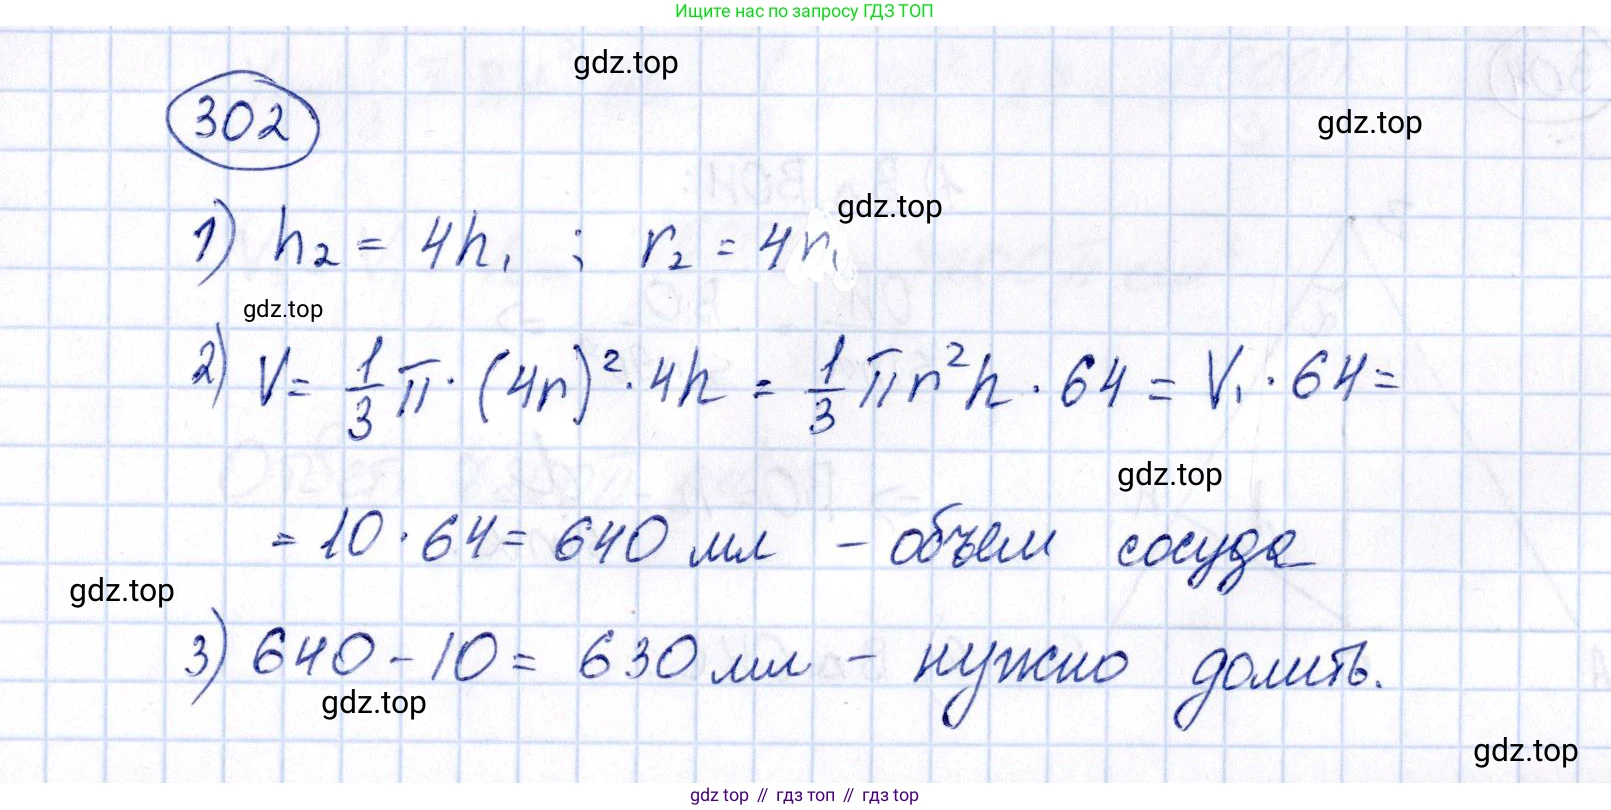 Ищите нас по запросу ГДЗ ТОП
gdz.top
302
gdz.top
gdz.top
1) h₂ = 4h₁ ; r₂ = 4r₁
gdz.top
2) V = 1/3 π · (4r)² · 4h = 1/3 πr²h · 64 = V₁ · 64 =
gdz.top
= 10 · 64 = 640 мл – объем сосуда
gdz.top
3) 640 – 10 = 630 мл – нужно долить.
gdz.top
gdz.top
gdz top // гдз топ // гдз top